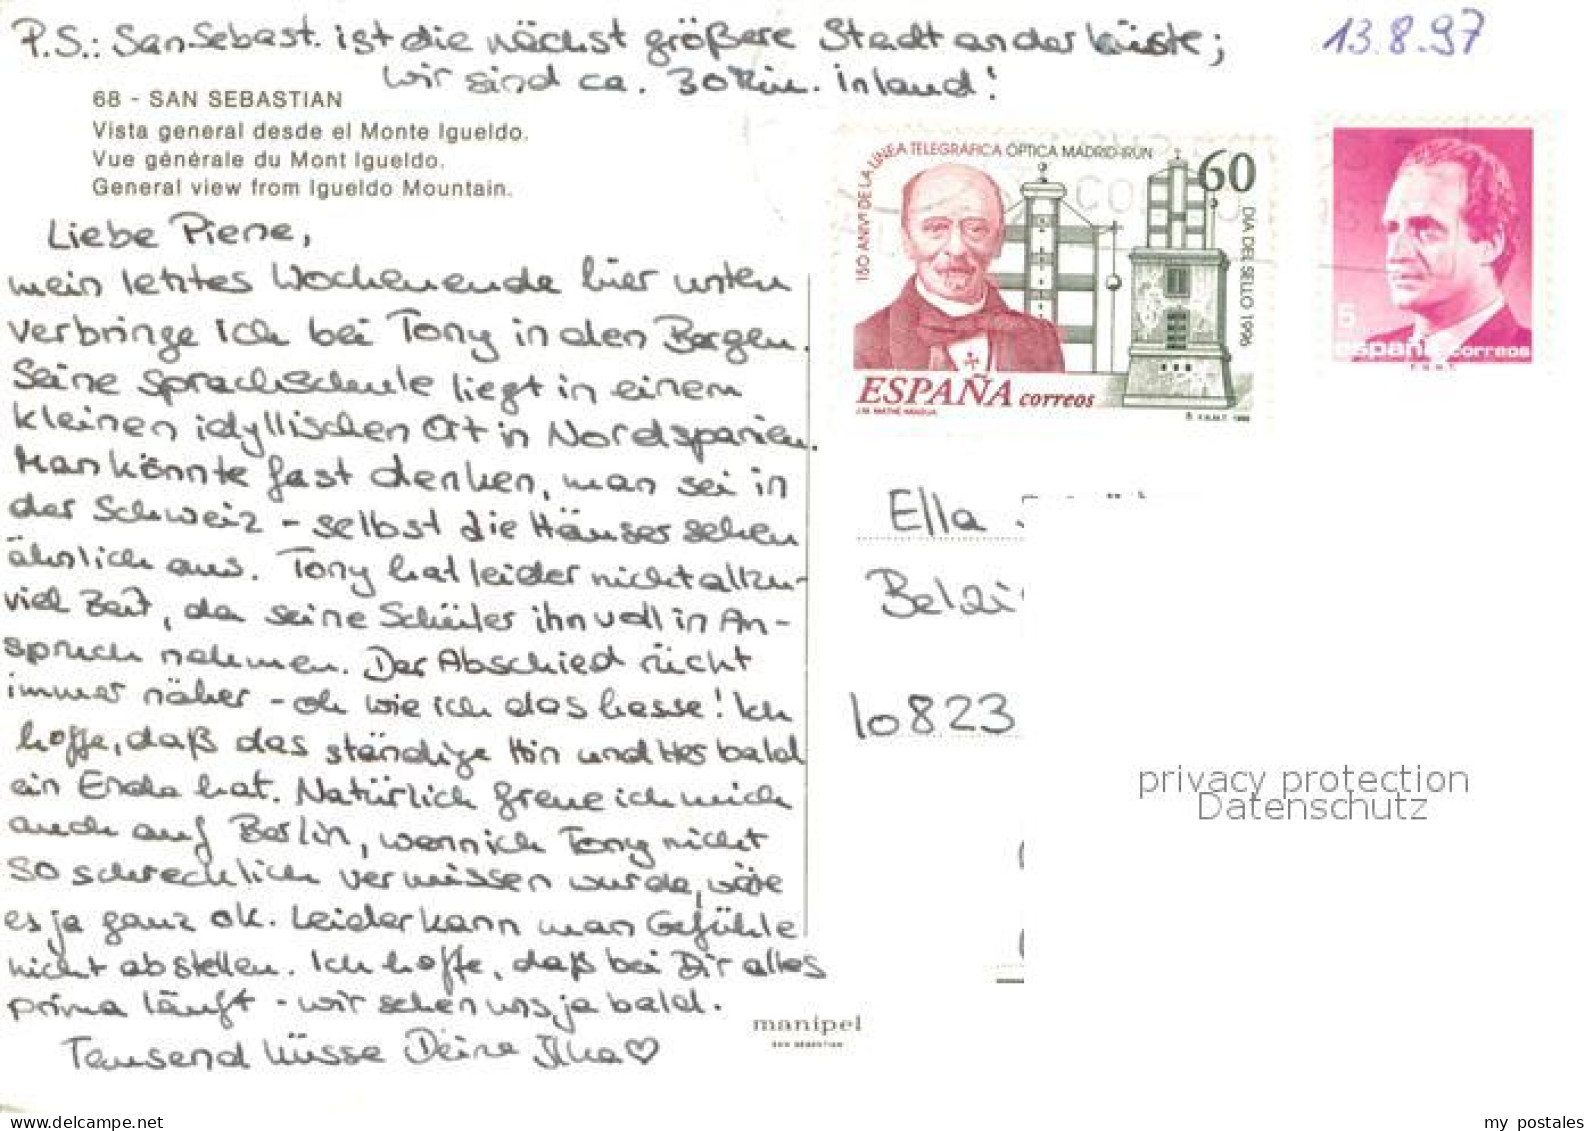 P.S.: San Sebast. ist die nächst größere Stadt an der Küste;
wir sind ca. 30 Km. inland!
13.8.97
68 - SAN SEBASTIAN
Vista general desde el Monte Igueldo.
Vue générale du Mont Igueldo.
General view from Igueldo Mountain.
Liebe Piene,
mein letztes Wochenende hier unten
verbringe ich bei Tony in den Bergen.
Seine Sprachschule liegt in einem
kleinen idyllischen Ort in Nordspanien.
Man könnte fast denken, man sei in
der Schweiz - selbst die Häuser sehen
ähnlich aus. Tony hat leider nicht allzu-
viel Zeit, da seine Schüler ihn voll in An-
spruch nehmen. Der Abschied rückt
immer näher - oh wie ich das hasse! Ich
hoffe, daß das ständige Hin und Her bald
ein Ende hat. Natürlich freue ich mich
auch auf Berlin, wenn ich Tony nicht
so schrecklich vermissen würde, wäre
es ja ganz ok. Leider kann man Gefühle
nicht abstellen. Ich hoffe, daß bei Dir alles
prima läuft - wir sehen uns ja bald.
Tausend Küsse Deine Ilka♡
150 ANIVº DE LA LÍNEA TELEGRÁFICA ÓPTICA MADRID-IRÚN
60
DIA DEL SELLO 1996
ESPAÑA correos
J.M. MATHÉ ARAGUA
F.N.M.T. 1996
5
españa correos
F.N.M.T.
Ella
Belzi
10823
privacy protection
Datenschutz
manipel
SAN SEBASTIAN
my postales